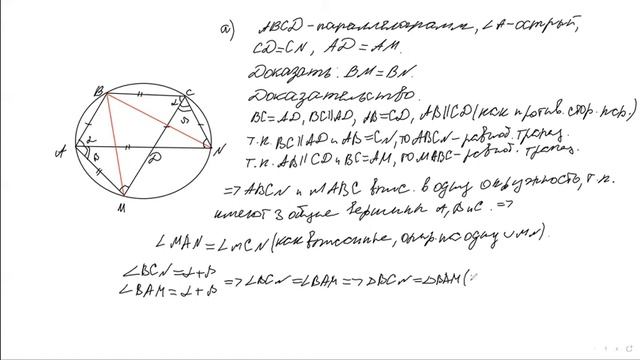 а) ABCD - параллелограмм, ∠A - острый,
CD=CN, AD=AM.
Доказать: BM=BN.
Доказательство.
BC=AD, BC∥AD, AB=CD, AB∥CD (как против. стор. пар.)
т.к. BC∥AD и AB=CN, то ABCN - равноб. трапец.
т.к. AB∥CD и BC=AM, то MABC - равноб. трапец.
=> ABCN и MABC впис. в одну окружность, т.к.
имеют 3 общие вершины A, B и C. =>
∠MAN=∠MCN (как вписанные, опир. на одну ∪MN).
∠BCN=α+β
∠BAM=α+β => ∠BCN=∠BAM => ΔBCN=ΔBAM (
B C
α β
A α β D N
M